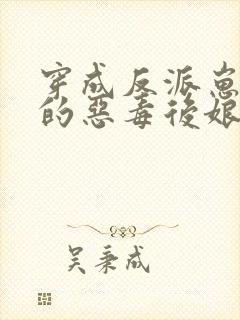 穿成反派崽
的惡毒後娘
吴秉成